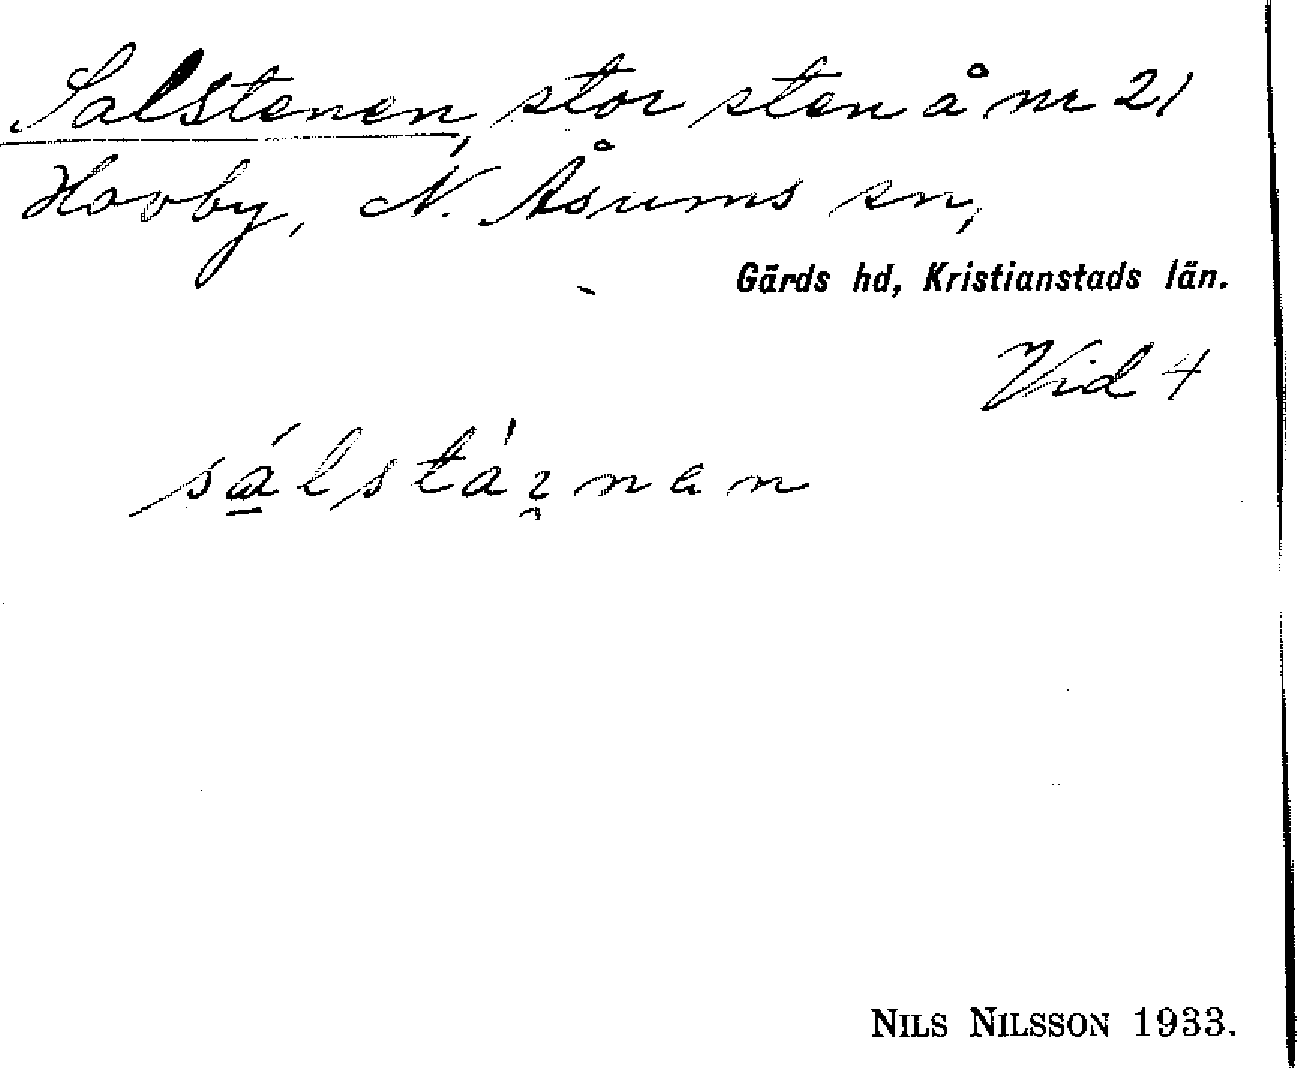 Salstenen, stor sten å nr 21
Hovby, N. Åsums sn,
Gärds hd, Kristianstads län.
Vid 4
NILS NILSSON 1933.